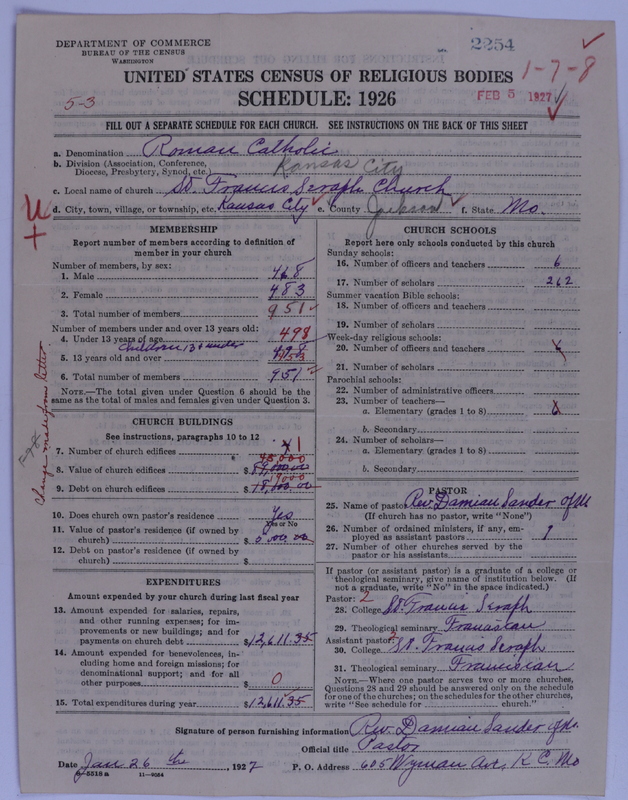 DEPARTMENT OF COMMERCE
BUREAU OF THE CENSUS
WASHINGTON
2254
UNITED STATES CENSUS OF RELIGIOUS BODIES
1-7-8
5-3
SCHEDULE: 1926
FEB 5 1927
FILL OUT A SEPARATE SCHEDULE FOR EACH CHURCH. SEE INSTRUCTIONS ON THE BACK OF THIS SHEET
a. Denomination Roman Catholic
b. Division (Association, Conference, Diocese, Presbytery, Synod, etc.) Kansas City
c. Local name of church St. Francis Seraph Church
d. City, town, village, or township, etc. Kansas City e. County Jackson f. State Mo.
MEMBERSHIP
Report number of members according to definition of
member in your church
Number of members, by sex:
1. Male 468
2. Female 483
3. Total number of members 951
Number of members under and over 13 years old:
4. Under 13 years of age 498
Children 13 & under
5. 13 years old and over 498 453
6. Total number of members 951
NOTE.—The total given under Question 6 should be the
same as the total of males and females given under Question 3.
Change made from letter.
CHURCH BUILDINGS
See instructions, paragraphs 10 to 12
7. Number of church edifices 1
8. Value of church edifices $
9. Debt on church edifices $
10. Does church own pastor's residence Yes
Yes or No
11. Value of pastor's residence (if owned by
church) $
12. Debt on pastor's residence (if owned by
church) $
EXPENDITURES
Amount expended by your church during last fiscal year
13. Amount expended for salaries, repairs,
and other running expenses; for im-
provements or new buildings; and for
payments on church debt $12,611.35
14. Amount expended for benevolences, in-
cluding home and foreign missions; for
denominational support; and for all
other purposes $ 0
15. Total expenditures during year $12,611.35
CHURCH SCHOOLS
Report here only schools conducted by this church
Sunday schools:
16. Number of officers and teachers 6
17. Number of scholars 262
Summer vacation Bible schools:
18. Number of officers and teachers
19. Number of scholars
Week-day religious schools:
20. Number of officers and teachers
21. Number of scholars
Parochial schools:
22. Number of administrative officers
23. Number of teachers—
a. Elementary (grades 1 to 8)
b. Secondary
24. Number of scholars—
a. Elementary (grades 1 to 8)
b. Secondary
PASTOR
25. Name of pastor Rev. Damian Sander ofm
(If church has no pastor, write "None")
26. Number of ordained ministers, if any, em-
ployed as assistant pastors 1
27. Number of other churches served by the
pastor or his assistants
If pastor (or assistant pastor) is a graduate of a college or
theological seminary, give name of institution below. (If
not a graduate, write "No" in the space indicated.)
Pastor: 2
28. College St. Francis Seraph
29. Theological seminary Franciscan
Assistant pastor:
30. College St. Francis Seraph
31. Theological seminary Franciscan
NOTE.—Where one pastor serves two or more churches,
Questions 28 and 29 should be answered only on the schedule
for one of the churches; on the schedules for the other churches,
write "See schedule for church."
Signature of person furnishing information Rev. Damian Sander ofm.
Official title Pastor
Date Jan 26 th, 1927 P. O. Address 605 Wyman Ave, K C. Mo
8-5518 a 11-9064